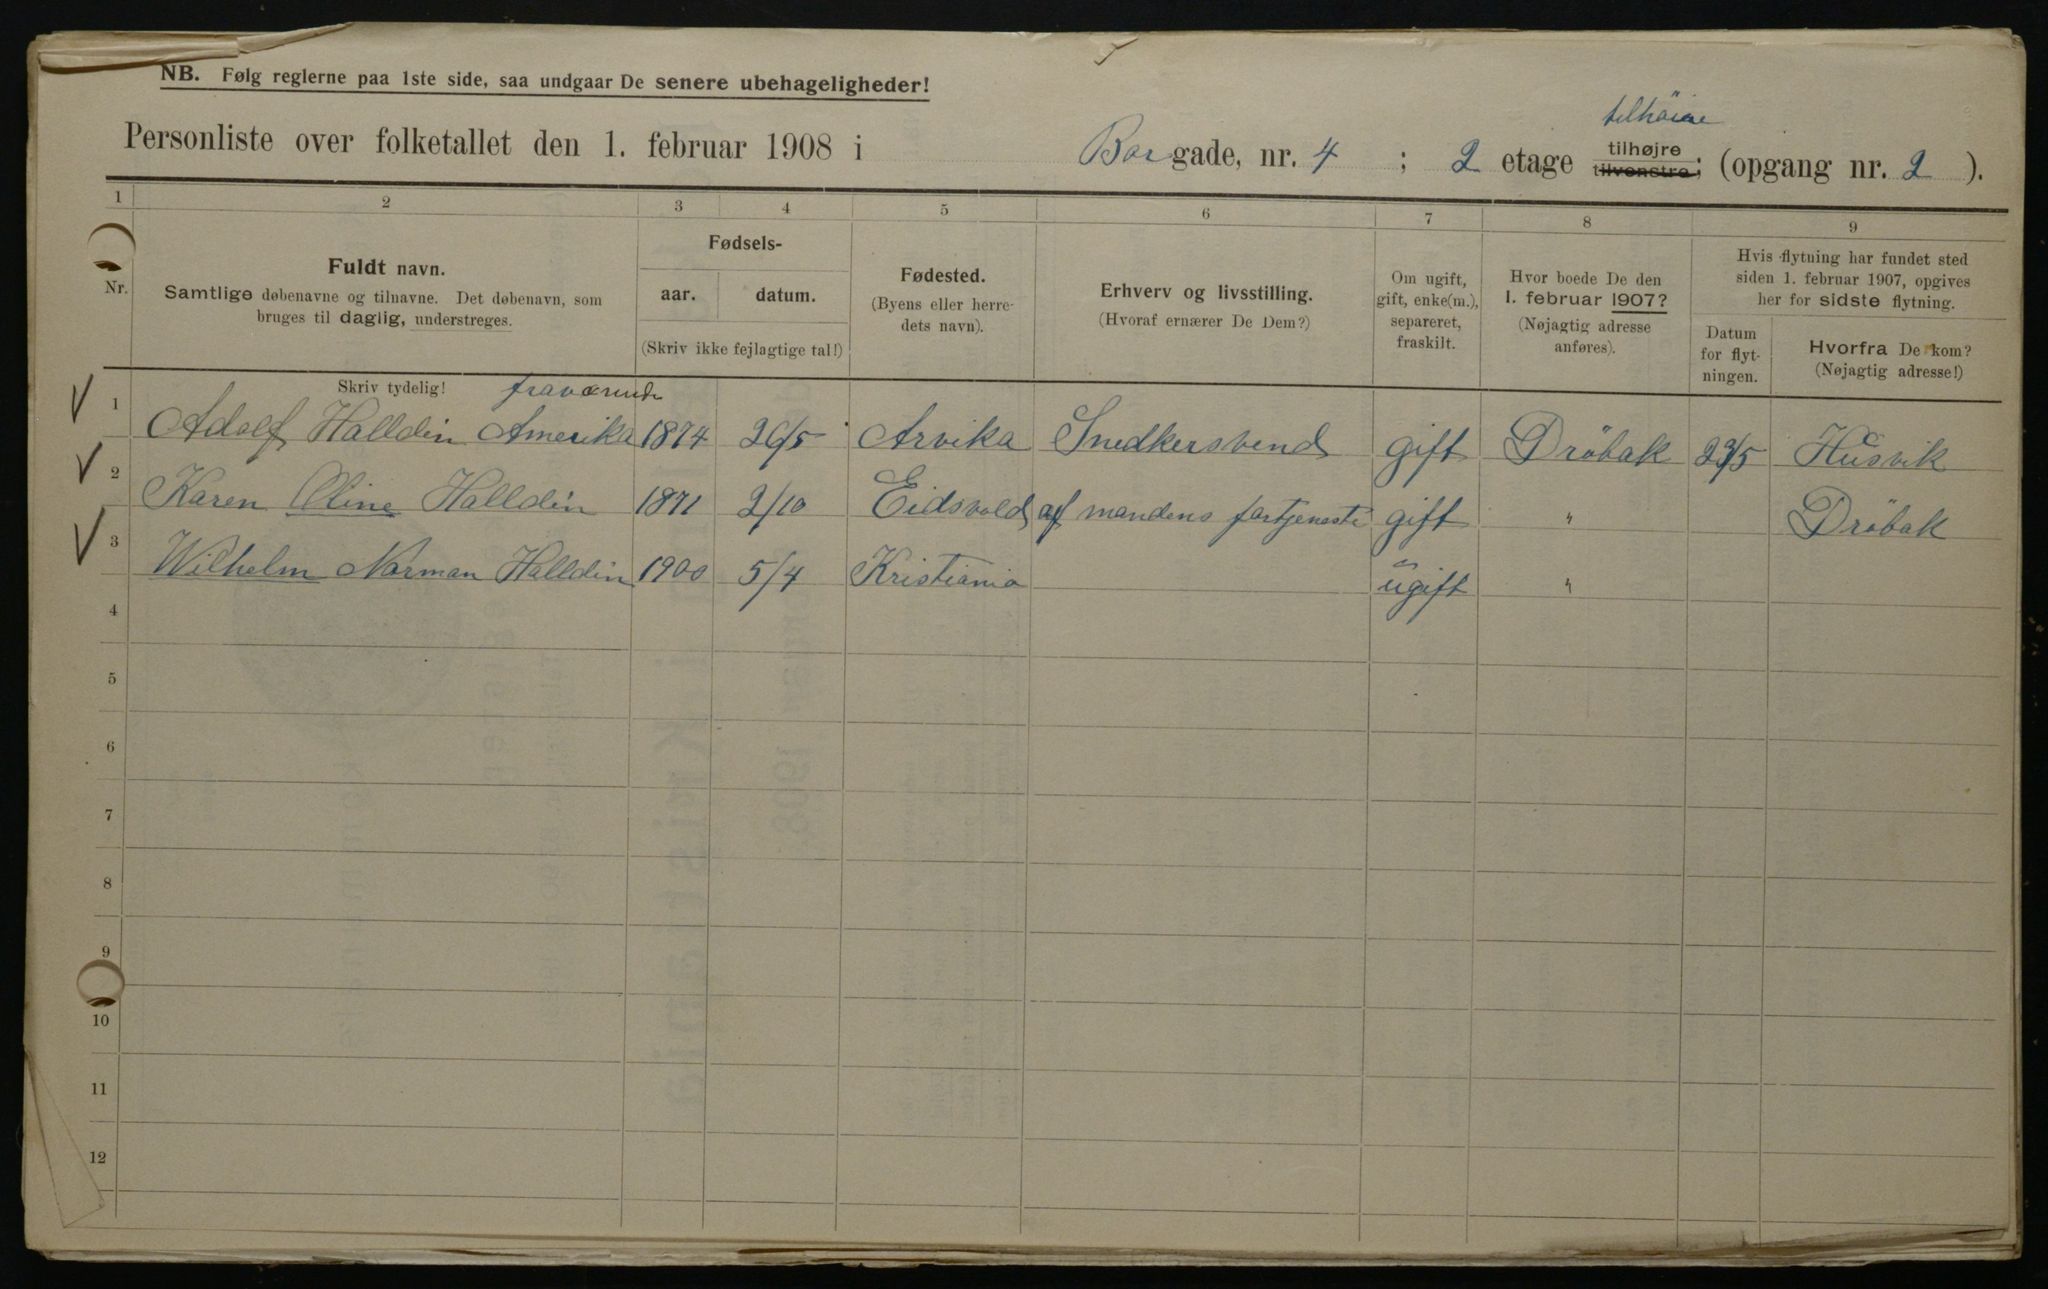 NB. Følg reglerne paa 1ste side, saa undgaar De senere ubehageligheder!
tilhöire
Personliste over folketallet den 1. februar 1908 i Borgade, nr. 4 ; 2 etage tilhøjre tilvenstre; (opgang nr. 2 ).
1 2 3 4 5 6 7 8 9
Nr.
Fuldt navn.
Samtlige døbenavne og tilnavne. Det døbenavn, som
bruges til daglig, understreges.
Skriv tydelig!
Fødsels-
aar. datum.
(Skriv ikke fejlagtige tal!)
Fødested.
(Byens eller herre-
dets navn).
Erhverv og livsstilling.
(Hvoraf ernærer De Dem?)
Om ugift,
gift, enke(m.),
separeret,
fraskilt.
Hvor boede De den
1. februar 1907?
(Nøjagtig adresse
anføres).
Hvis flytning har fundet sted
siden 1. februar 1907, opgives
her for sidste flytning.
Datum
for flyt-
ningen.
Hvorfra De kom?
(Nøjagtig adresse!)
fraværende
1 Adolf Halldin Amerika 1874 26/5 Arvika Snedkersvend gift Dröbak 23/5 Husvik
2 Karen Oline Halldin 1871 2/10 Eidsvold af mandens fortjeneste gift " Dröbak
3 Wilhelm Norman Halldin 1900 5/4 Kristiania ugift "
4
5
6
7
8
9
10
11
12